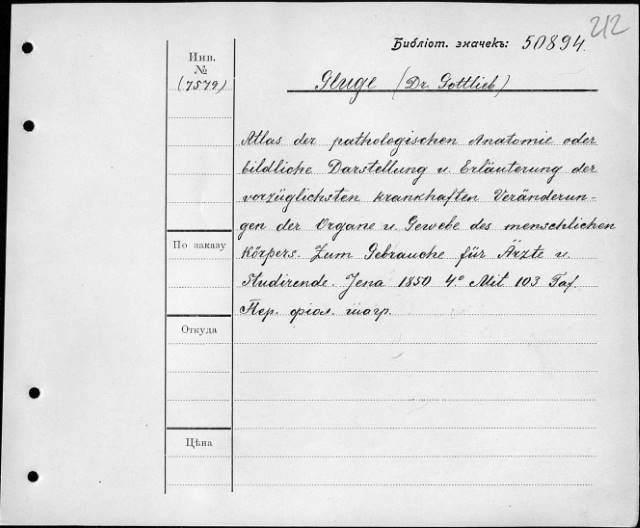 212
Библіот. значекъ: 50894.
Инв.
№
(7579)
Gluge (Dr. Gottlieb)
Atlas der pathologischen Anatomie oder
bildliche Darstellung u. Erläuterung der
vorzüglichsten krankhaften Veränderun-
gen der Organe u. Gewebe des menschlichen
Körpers. Zum Gebrauche für Ärzte u.
Studirende. Jena 1850 4° Mit 103 Taf.
Пер. фіол. шагр.
По заказу
Откуда
Цѣна